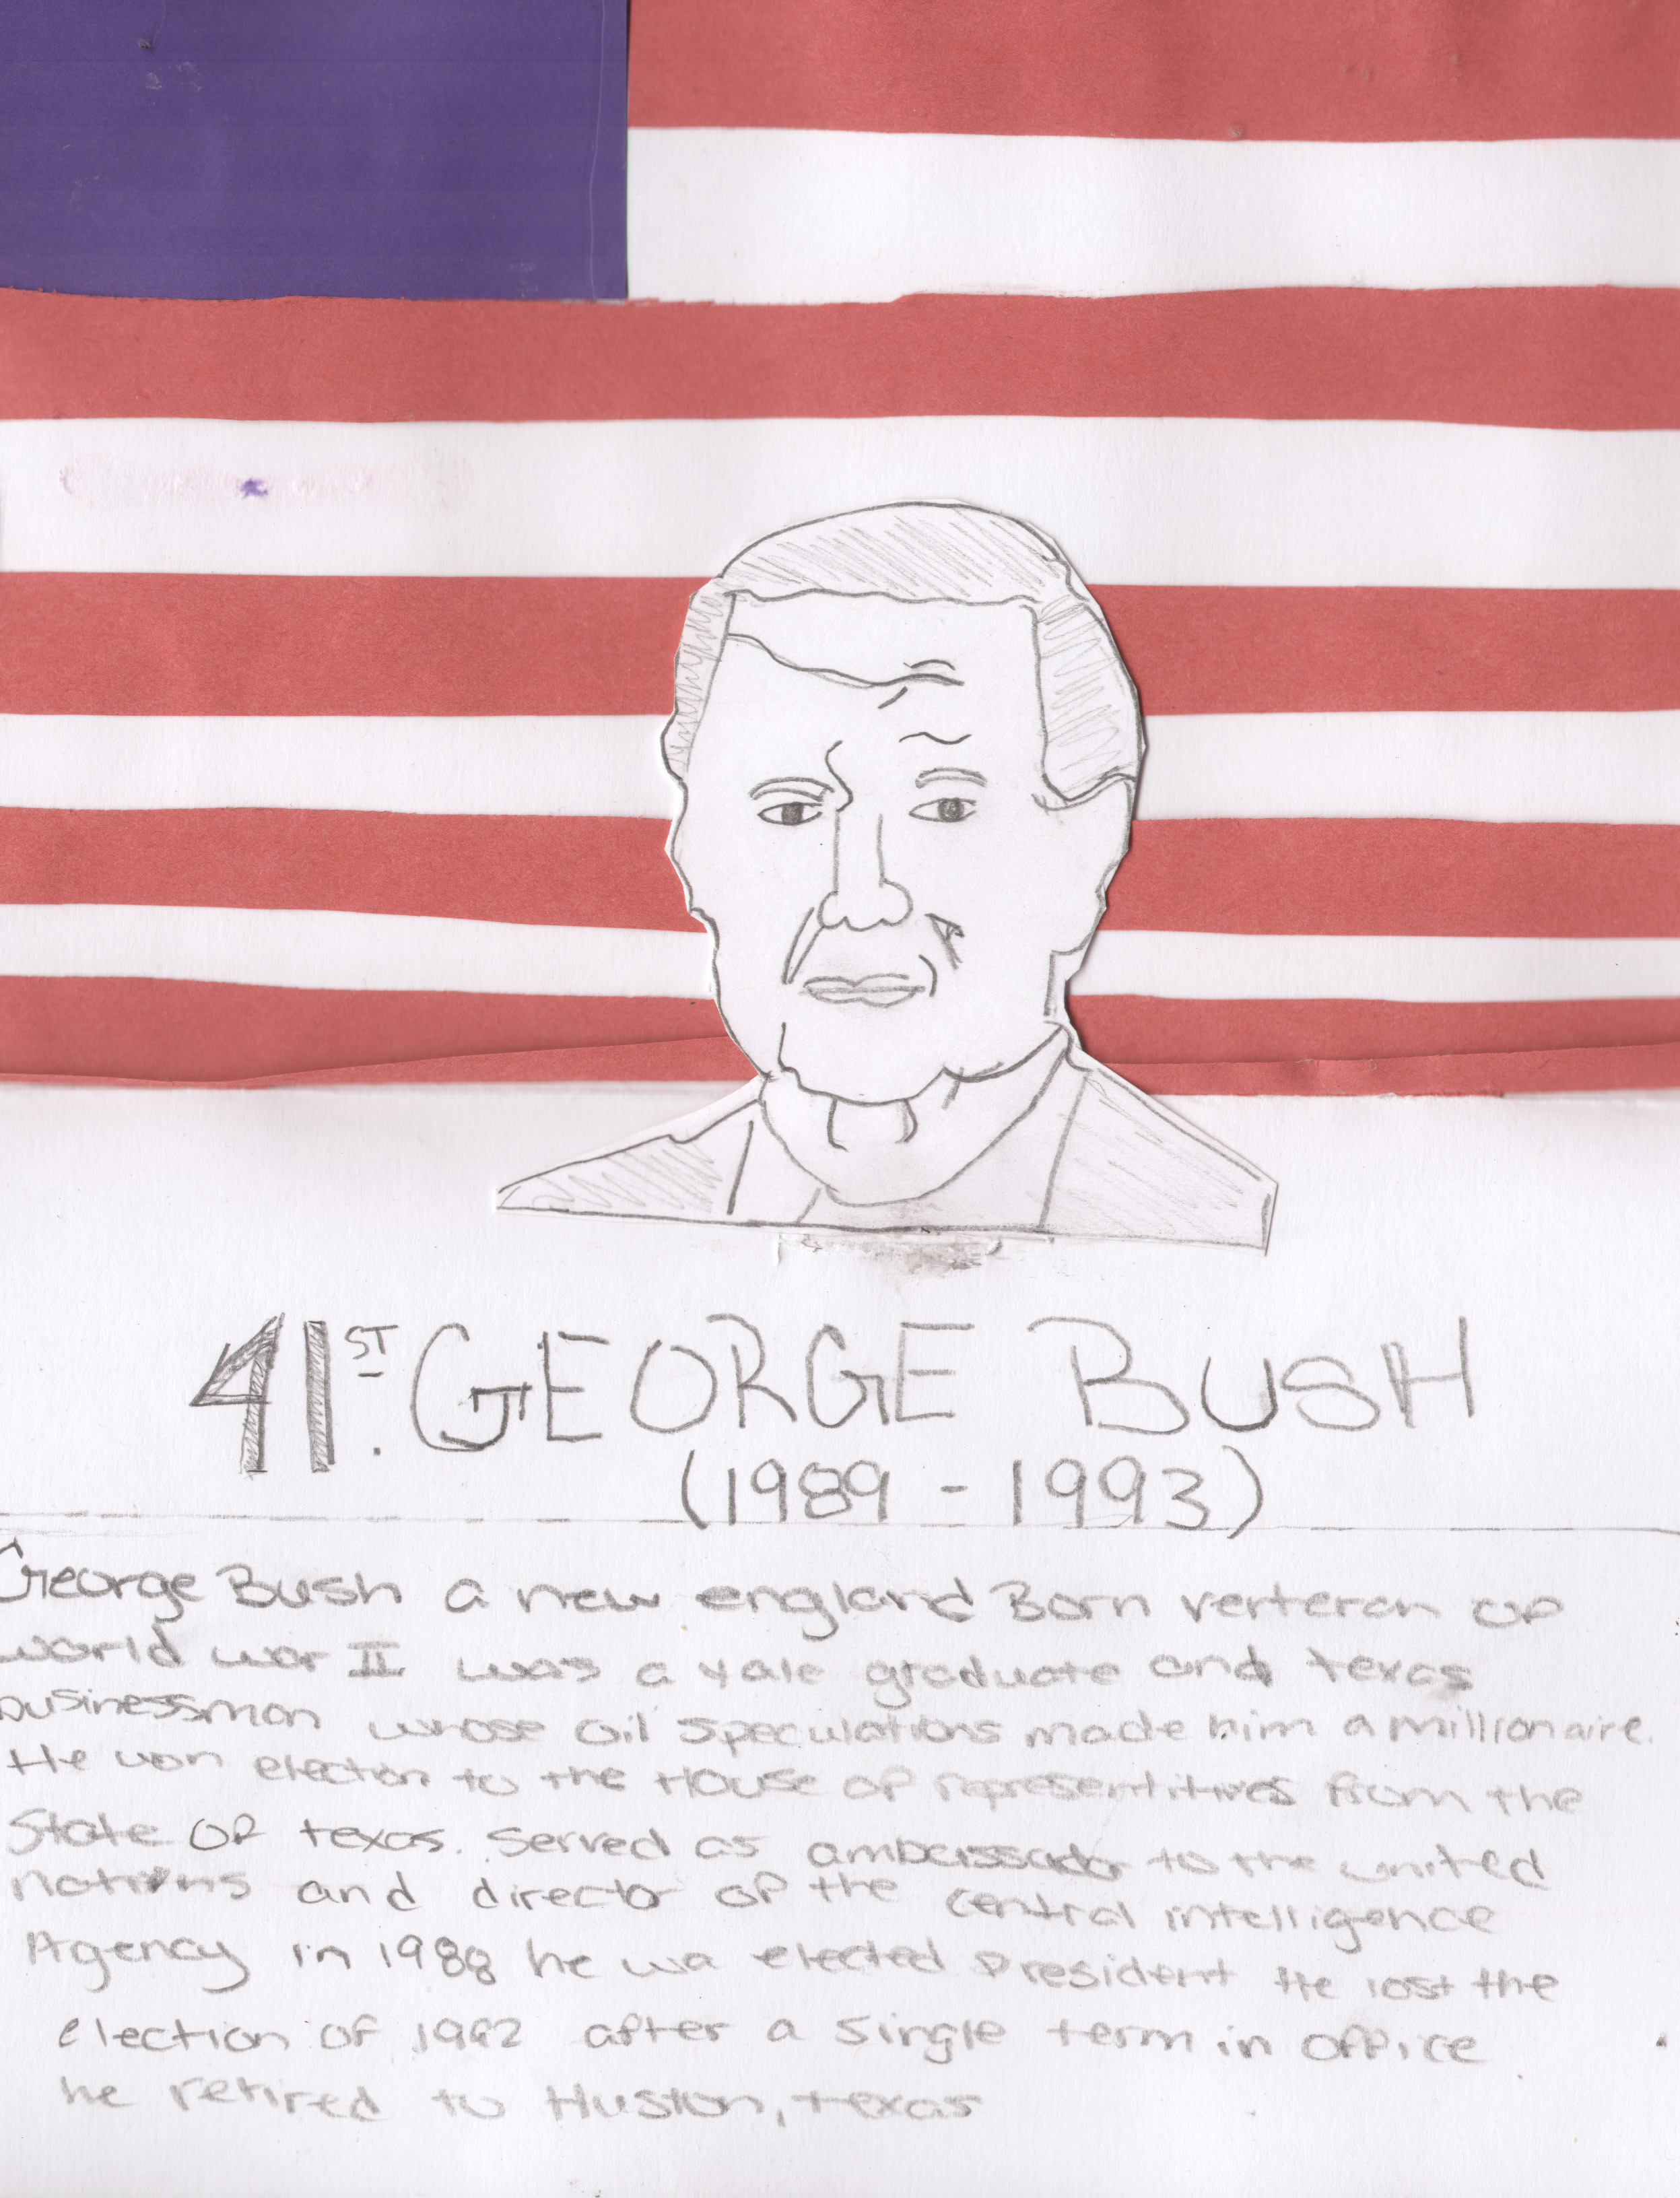 41ST. GEORGE BUSH
(1989 - 1993)
George Bush a new england Born verteran of
world war II was a yale graduate and texas
businessman whose oil speculations made him a millionaire.
He won election to the House of representitives from the
State of texas. Served as ambassador to the united
nations and director of the central intelligence
Agency in 1988 he wa elected President He lost the
election of 1992 after a single term in office
he retired to Huston, texas